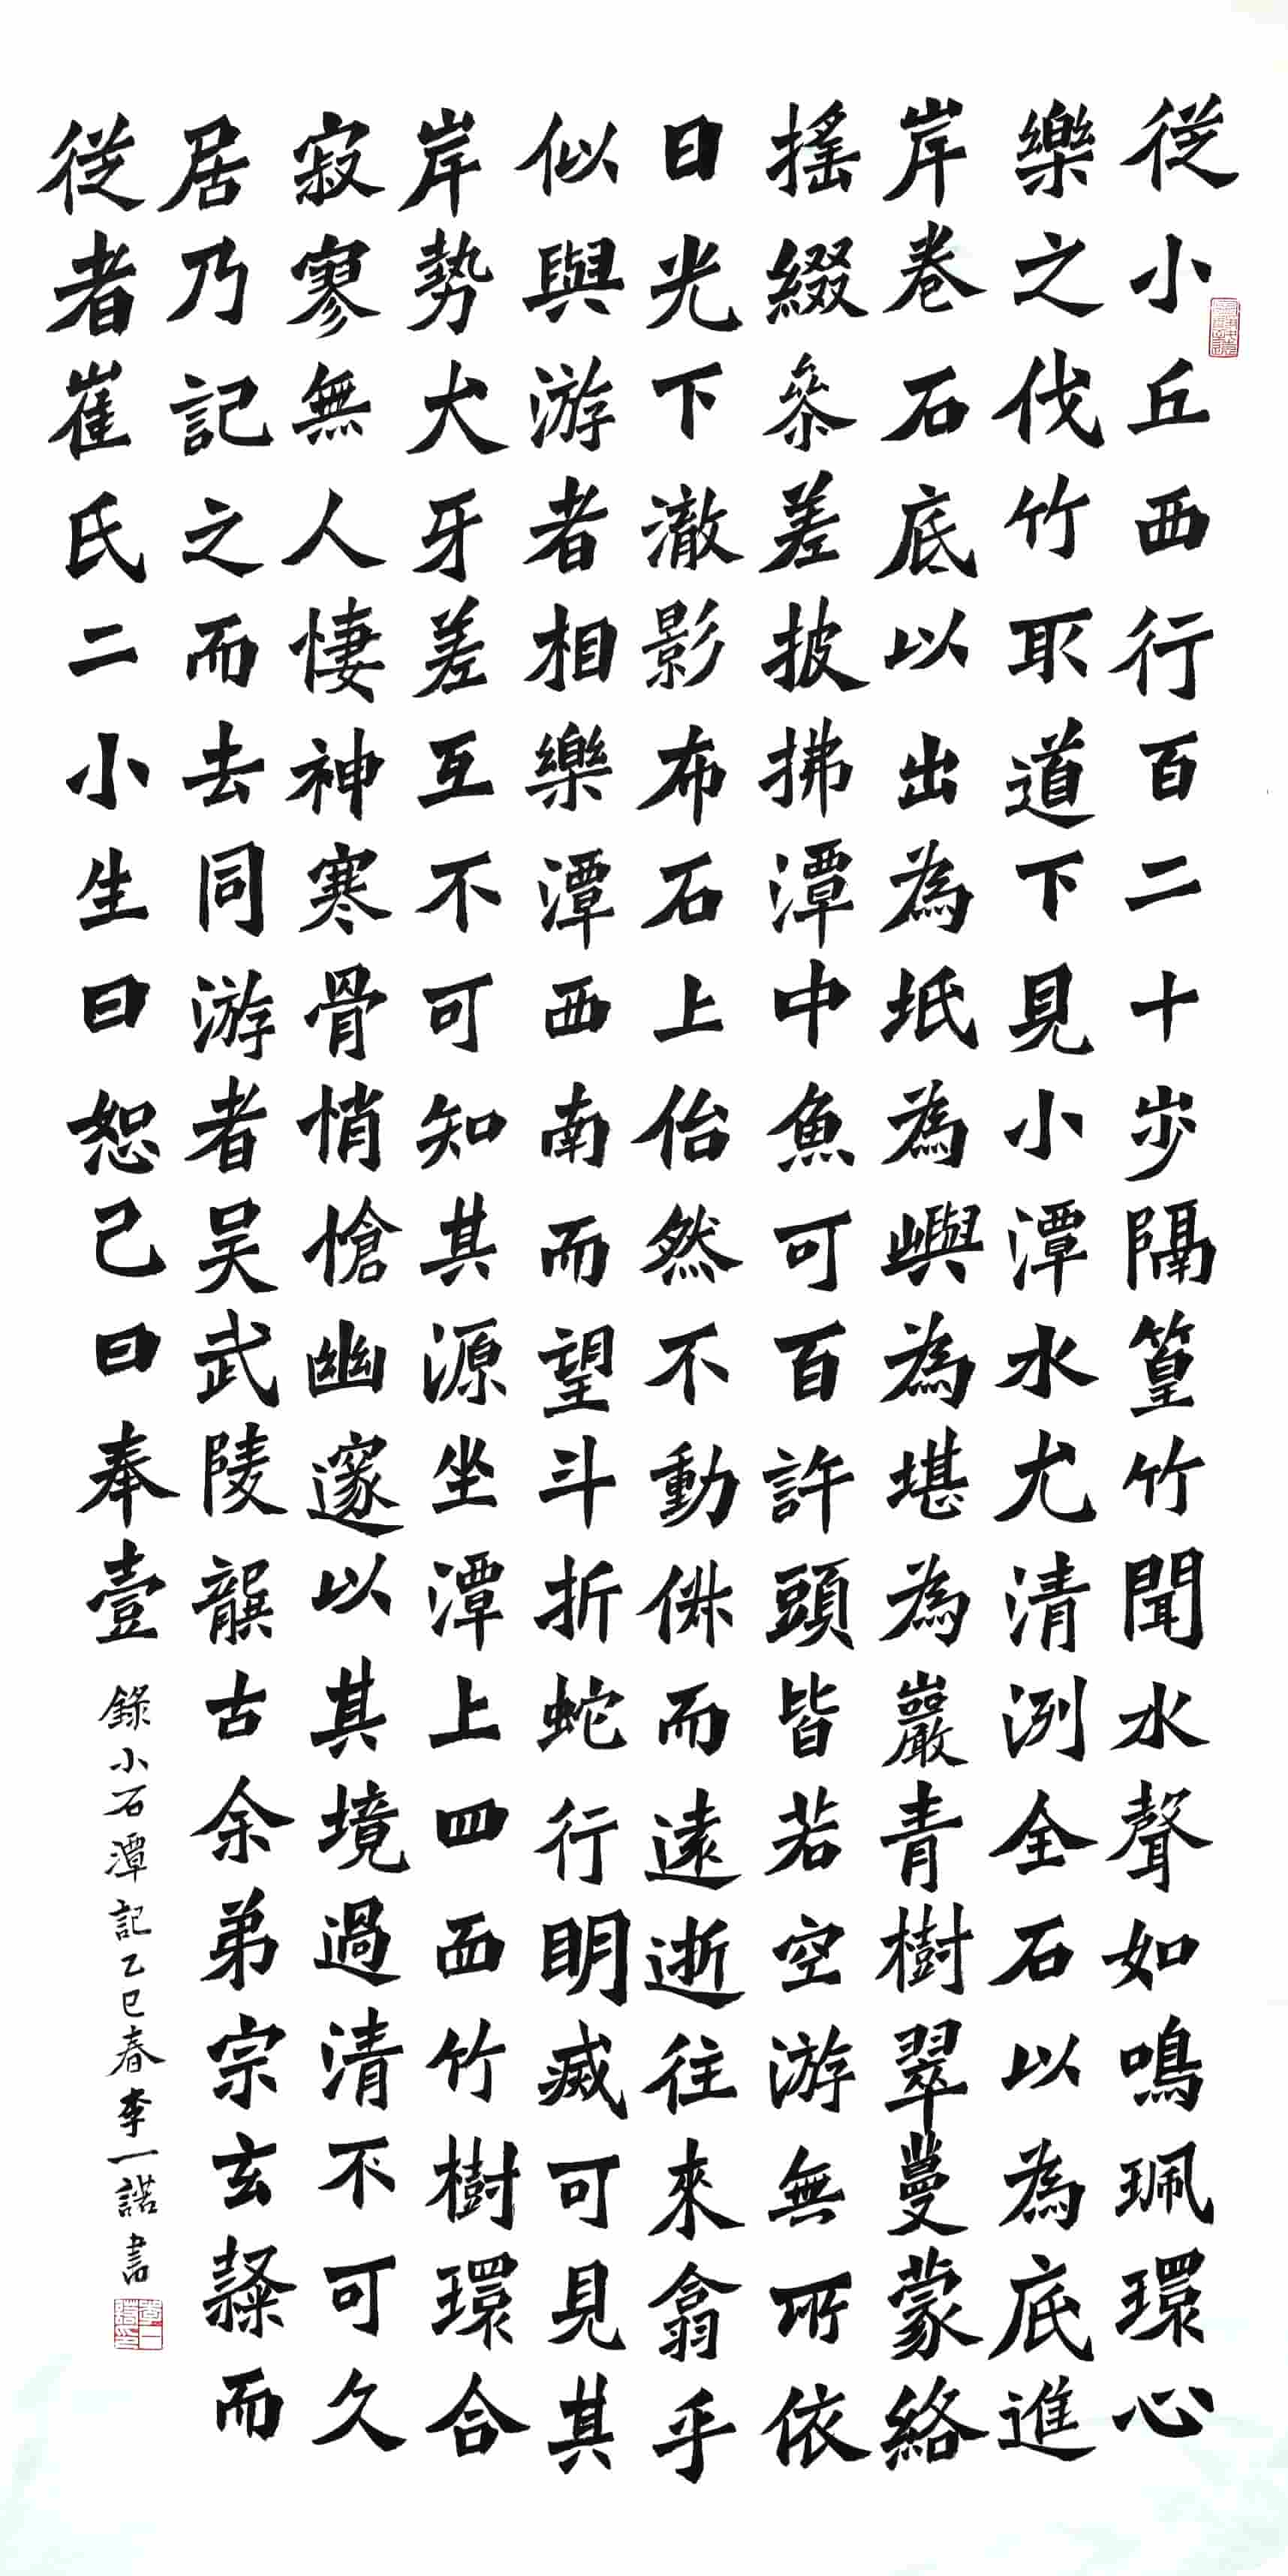 從小丘西行百二十步隔篁竹聞水聲如鳴珮環心
樂之伐竹取道下見小潭水尤清洌全石以為底進
岸卷石底以出為坻為嶼為堪為巖青樹翠蔓蒙絡
搖綴參差披拂潭中魚可百許頭皆若空游無所依
日光下澈影布石上佁然不動俶而遠逝往來翕乎
似與游者相樂潭西南而望斗折蛇行明滅可見其
岸勢犬牙差互不可知其源坐潭上四面竹樹環合
寂寥無人悽神寒骨悄愴幽邃以其境過清不可久
居乃記之而去同游者吴武陵龔古余弟宗玄隸而
從者崔氏二小生曰恕己曰奉壹
錄小石潭記乙巳春李一諾書